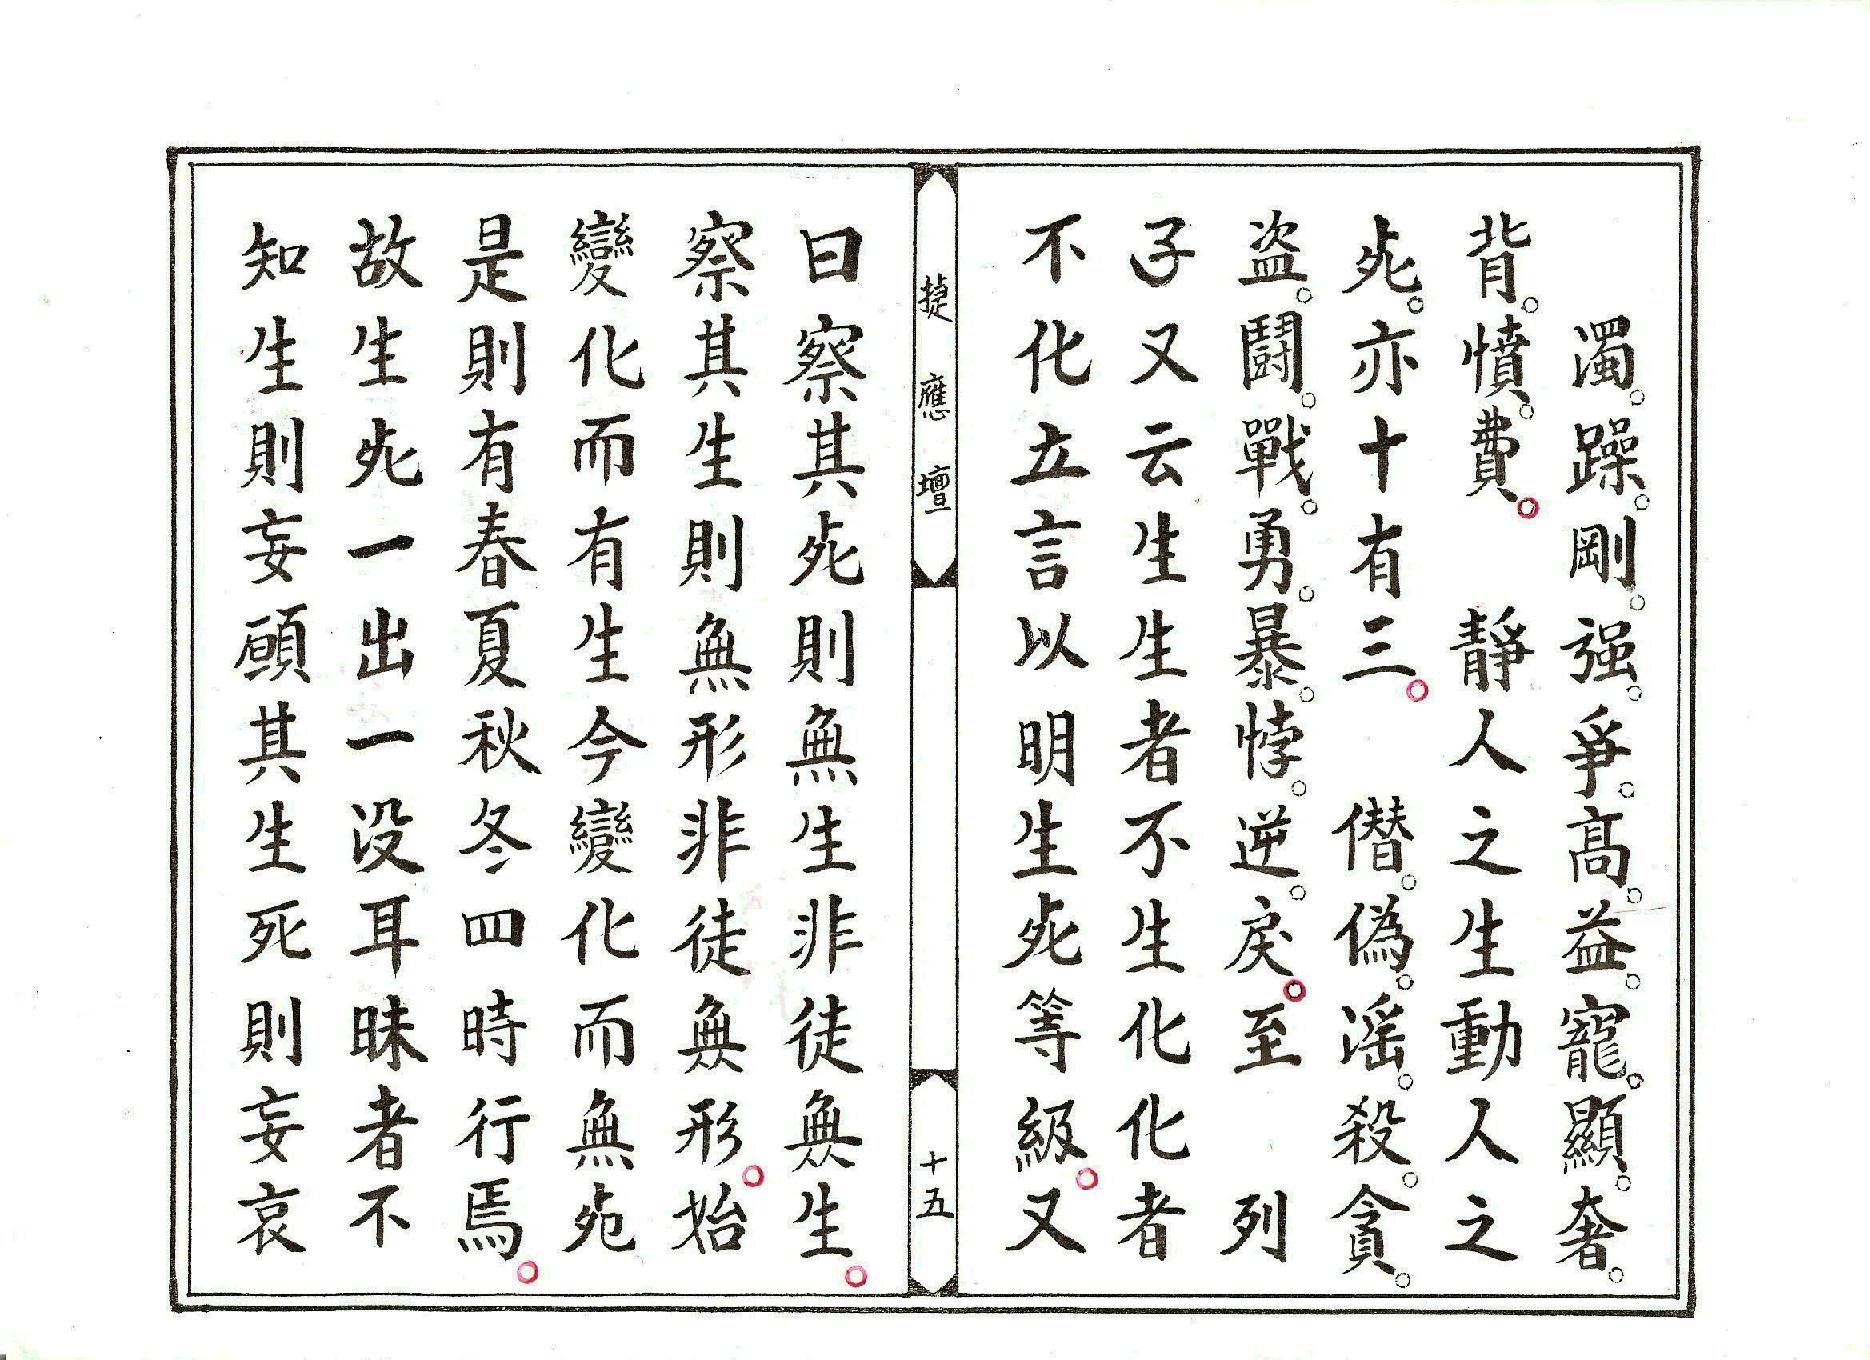 濁。躁。剛。强。爭。高。益。寵。顯。奢。
背。憤。費。 靜人之生動人之
死。亦十有三。 僭。偽。滛。殺。貪。
盗。鬪。戰。勇。暴。悖。逆。戾。至 列
子又云生生者不生化化者
不化立言以明生死等級。又
捷應壇
十五
曰察其死則無生非徒無生。
察其生則無形非徒無形。始
變化而有生今變化而無死
是則有春夏秋冬四時行焉。
故生死一出一没耳昧者不
知生則妄頋其生死則妄哀